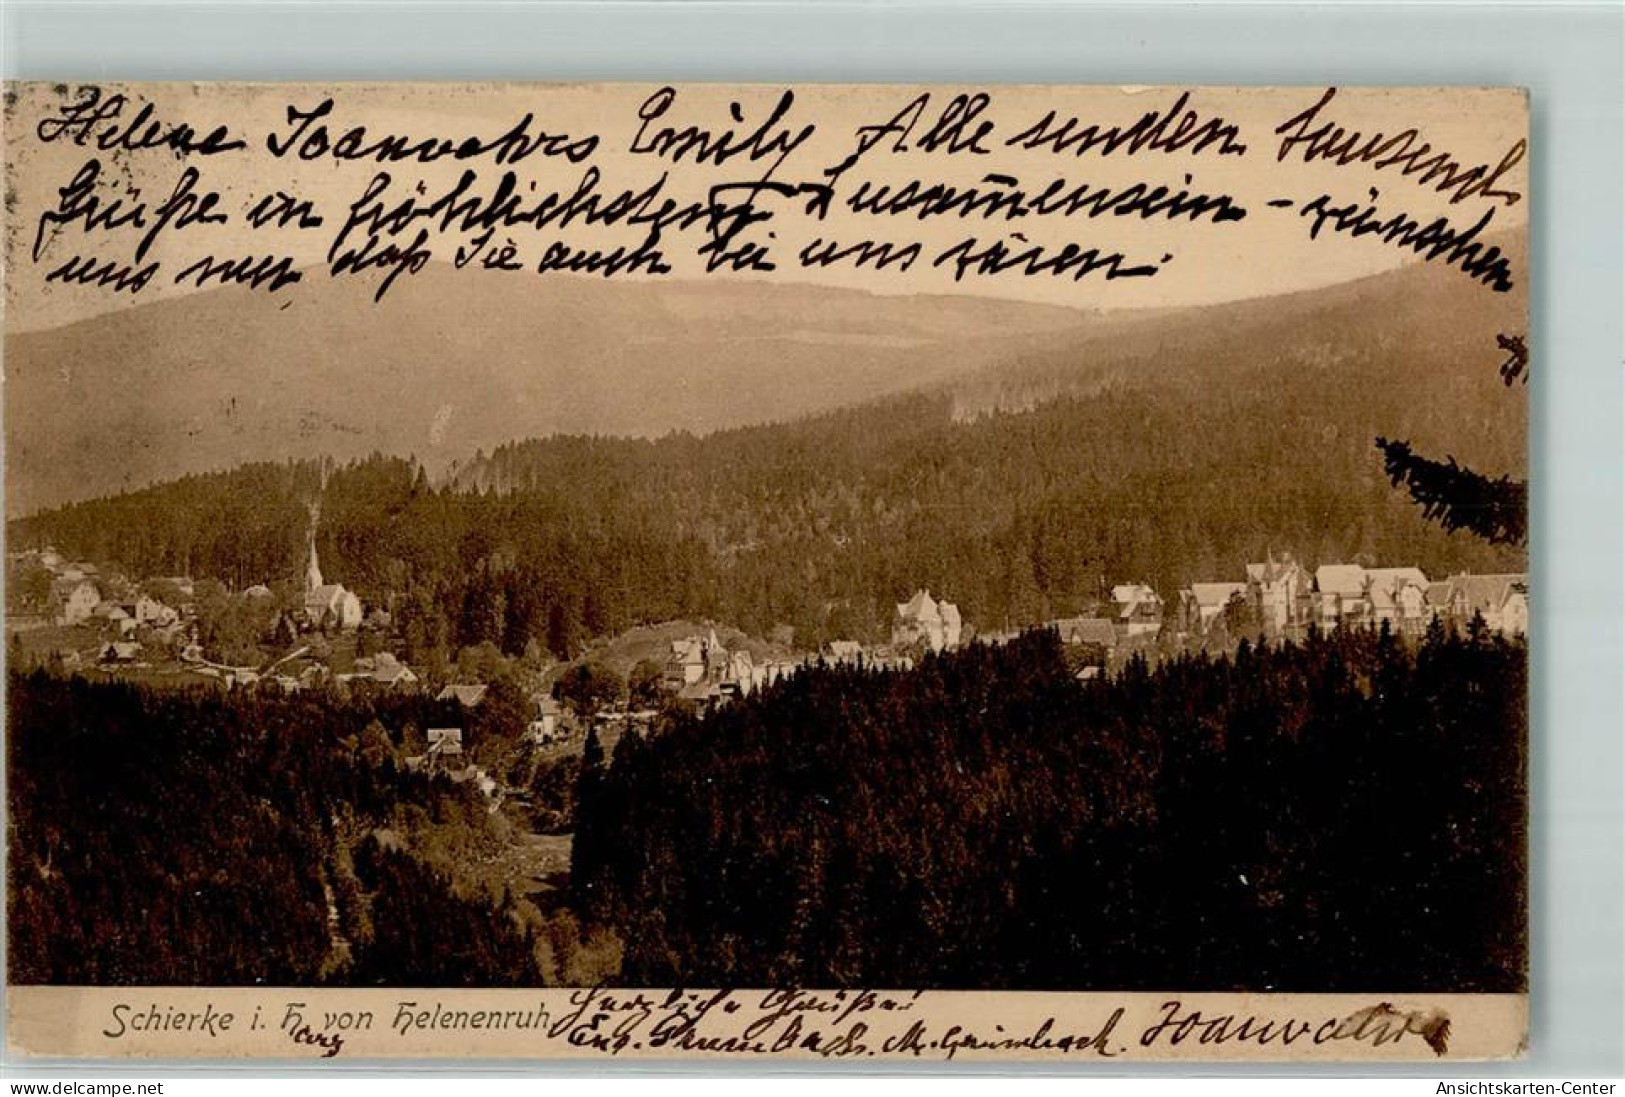 Helene Joanvahrs Emily Alle senden tausend
Grüße in fröhlichstem Zusammensein - wünschen
uns nur daß Sie auch bei uns wären.
Schierke i. H. von Helenenruh
Harz
Herzliche Grüße!
M. Grimbach. Joanvahrs
delcampe.net
Ansichtskarten-Center